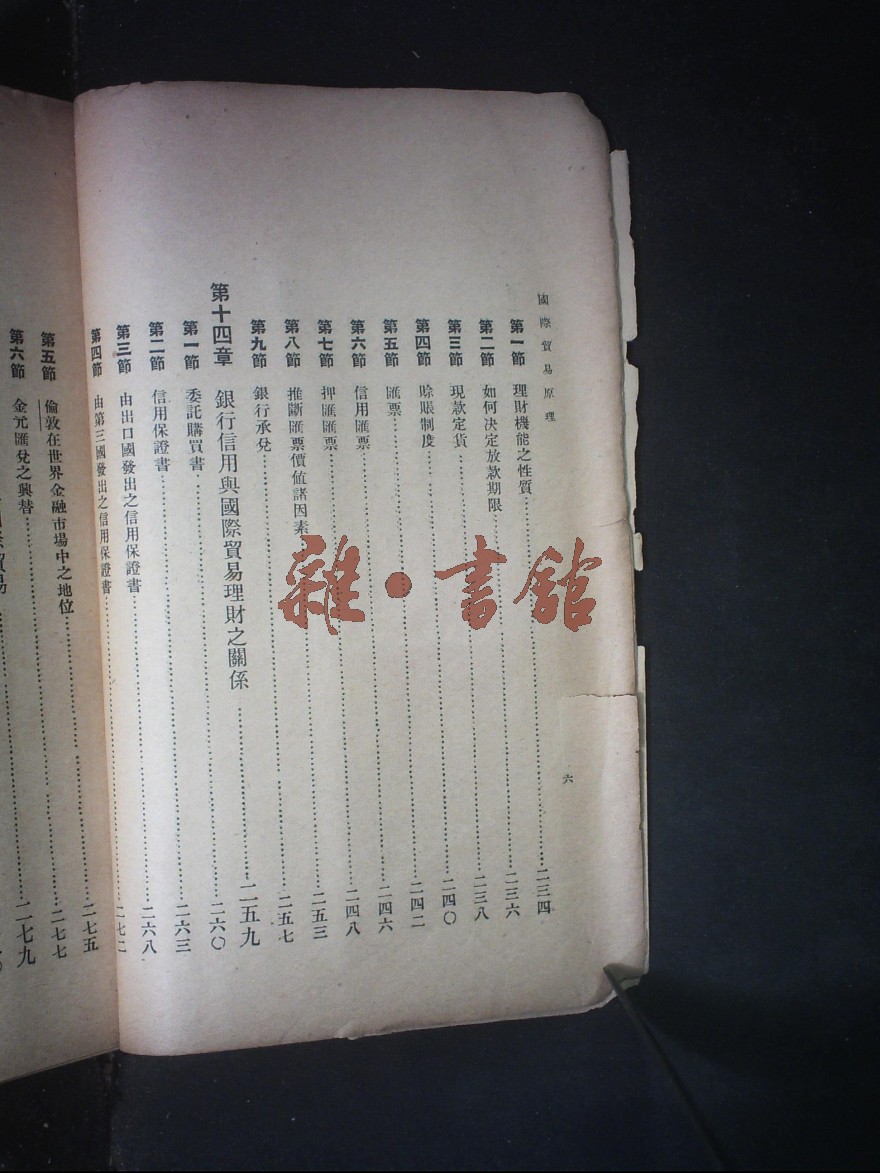 國際貿易原理
六
第一節 理財機能之性質……二三四
第二節 如何決定放款期限……二三六
第三節 現款定貨……二三八
第四節 賒賬制度……二四〇
第五節 匯票……二四二
第六節 信用匯票……二四六
第七節 押匯匯票……二四八
第八節 推斷匯票價值諸因素……二五三
第九節 銀行承兌……二五七
第十四章 銀行信用與國際貿易理財之關係……二五九
第一節 委託購買書……二六〇
第二節 信用保證書……二六三
第三節 由出口國發出之信用保證書……二六八
第四節 由第三國發出之信用保證書……二七二
第五節 倫敦在世界金融市場中之地位……二七五
第六節 金元匯兌之興替……二七七
二七九
雜·書館